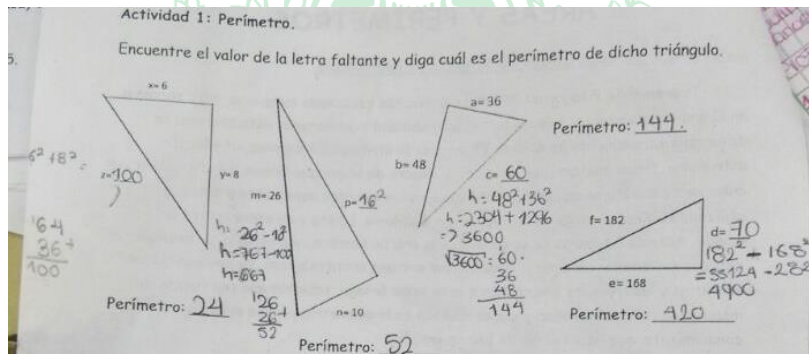 Actividad 1: Perímetro.
Encuentre el valor de la letra faltante y diga cuál es el perímetro de dicho triángulo.
5.
x= 6
y= 8
z= 100
6² + 8² =
64
36 +
100
Perímetro: 24
m= 26
p= 16²
n= 10
h= 26² - 10²
h= 767 - 100
h= 667
26
26 +
52
Perímetro: 52
a= 36
b= 48
c= 60
h= 48² + 36²
h= 2304 + 1296
=> 3600
√3600 = 60.
36
48
144
Perímetro: 144.
f= 182
d= 70
e= 168
182² - 168²
= 33124 - 282
4900
Perímetro: 420